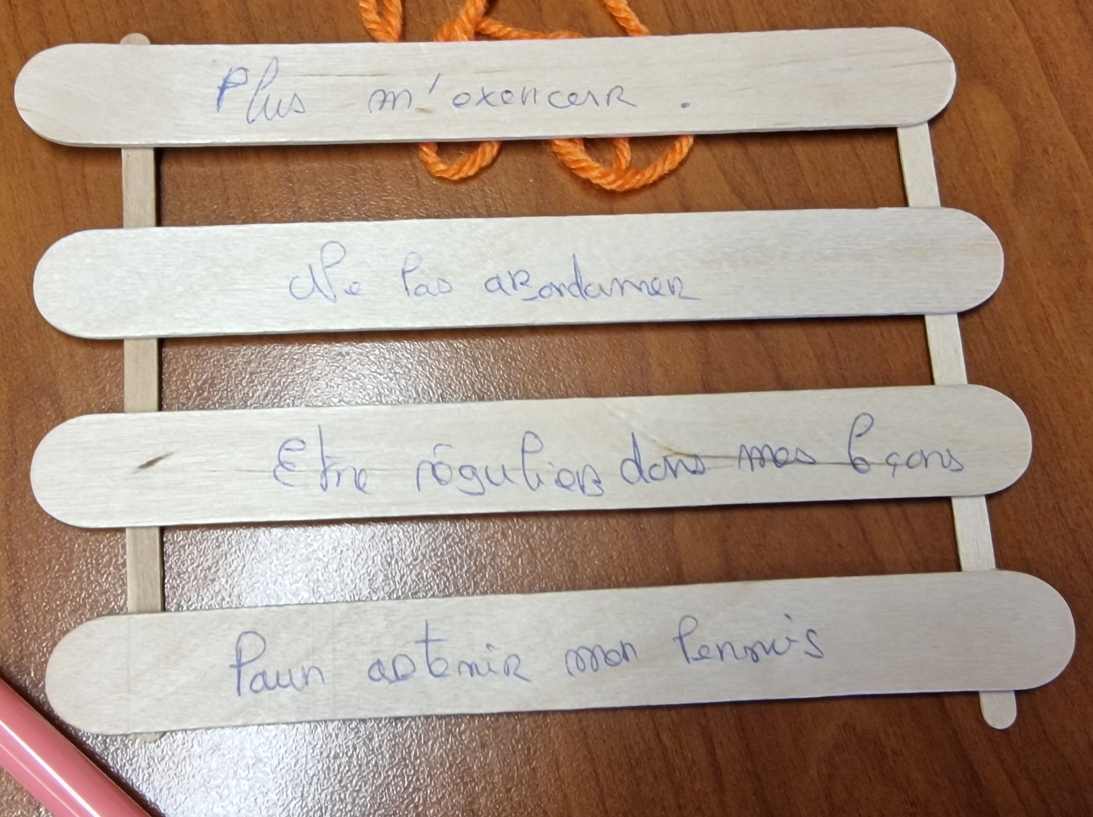 Plus m'exencerr.
Ne Pas abondamner
Etre régulier dans mes leçons
Paun obtenir mon Permis